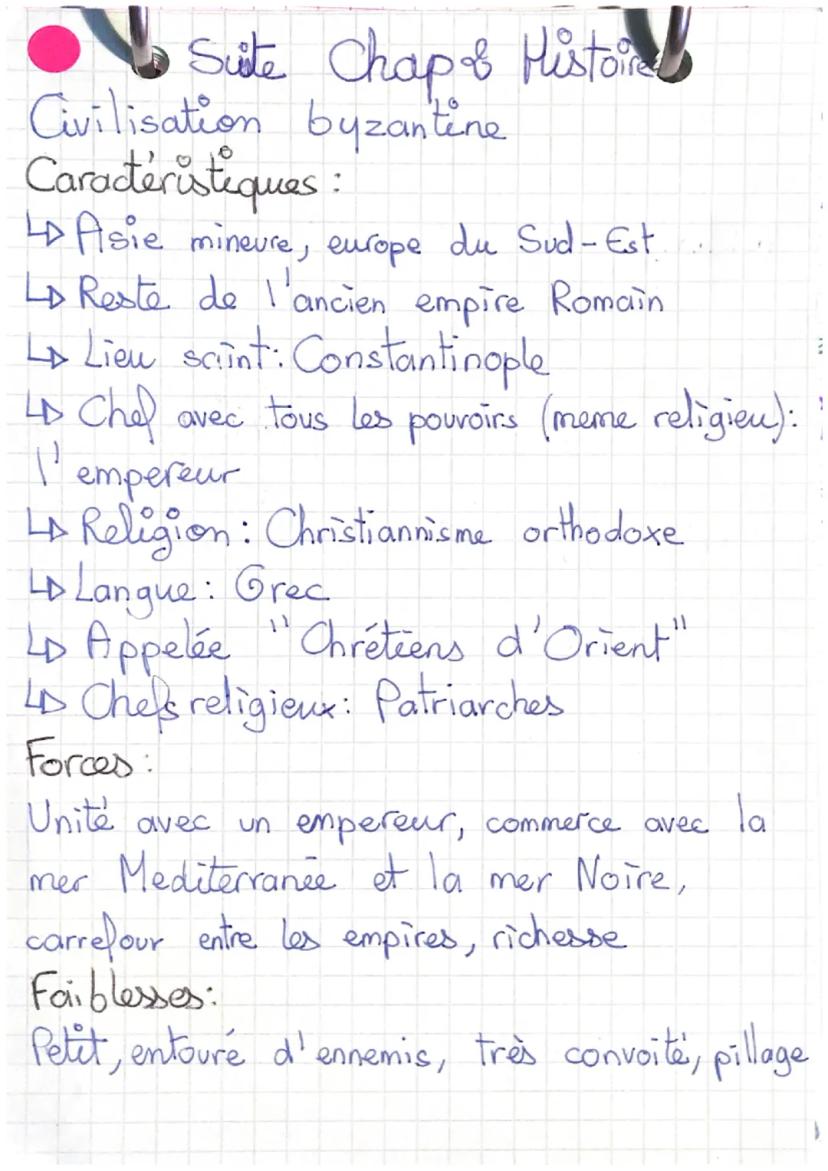 Suite Chap 8 Histoire
Civilisation byzantine
Caractéristiques :
↳ Asie mineure, europe du Sud-Est
↳ Reste de l'ancien empire Romain
↳ Lieu saint: Constantinople
↳ Chef avec tous les pouvoirs (meme religieu):
l'empereur
↳ Religion: Christiannisme orthodoxe
↳ Langue: Grec
↳ Appelée "Chrétiens d'Orient"
↳ Chefs religieux: Patriarches
Forces :
Unité avec un empereur, commerce avec la
mer Mediterranée et la mer Noire,
carrefour entre les empires, richesse
Faiblesses:
Petit, entouré d'ennemis, très convoité, pillage